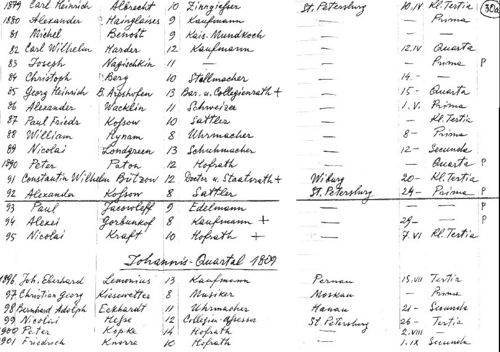 1879 Carl Heinrich Albrecht 10 Zinngiesser St. Petersburg 10.IV Kl. Tertia
1880 Alexander Hainglaises 9 Kaufmann — — Prima
81 Michel Benoît 9 Kais. Mundkoch — — —
82 Carl Wilhelm Harder 12 Kaufmann — 12.IV Quarta
83 Joseph Nagischkin 11 — — Prima P
84 Christoph Berg 10 Stellmacher — 14.- —
85 Georg Heinrich B. Arpshofen 13 Bar. u. Collegienrath + — 15- Quarta
86 Alexander Wacklin 11 Schweizer — 1.V. Prima
87 Paul Friedr. Kofsow 10 Sattler — — Kl. Tertia
88 William Hynam 8 Uhrmacher — 8- Prima
89 Nicolai Londgreen 13 Schuhmacher — 12- Secunda
1890 Peter Paton 12 Hofrath — — Quarta P
91 Constantin Wilhelm Bützow 12 Doctor u. Staatsrath + Wiborg 20- Kl. Tertia
92 Alexander Kofsow 8 Sattler St. Petersburg 24- Prima P
93 Paul Jacowleff 9 Edelmann — — — P
94 Alexei Gorbunkof 8 Kaufmann + — 29- — P
95 Nicolai Kraft 10 Hofrath + — 7.VI Kl. Tertia
Johannis-Quartal 1809
1896 Joh. Eberhard Lemonius 13 Kaufmann Pernau 15.VII Tertia
97 Christian Georg Kiesewetter 8 Musiker Moskau — Prima
98 Bernhard Adolph Eckhardt 11 Uhrmacher Hanau 21- Secunda
99 Nicolai Hesse 12 Collegien-Assessor St. Petersburg 26- Tertia
1900 Peter Kopke 14 Hofrath — 2.VIII- —
1901 Friedrich Knorre 10 Hofrath — 1.IX Secunda